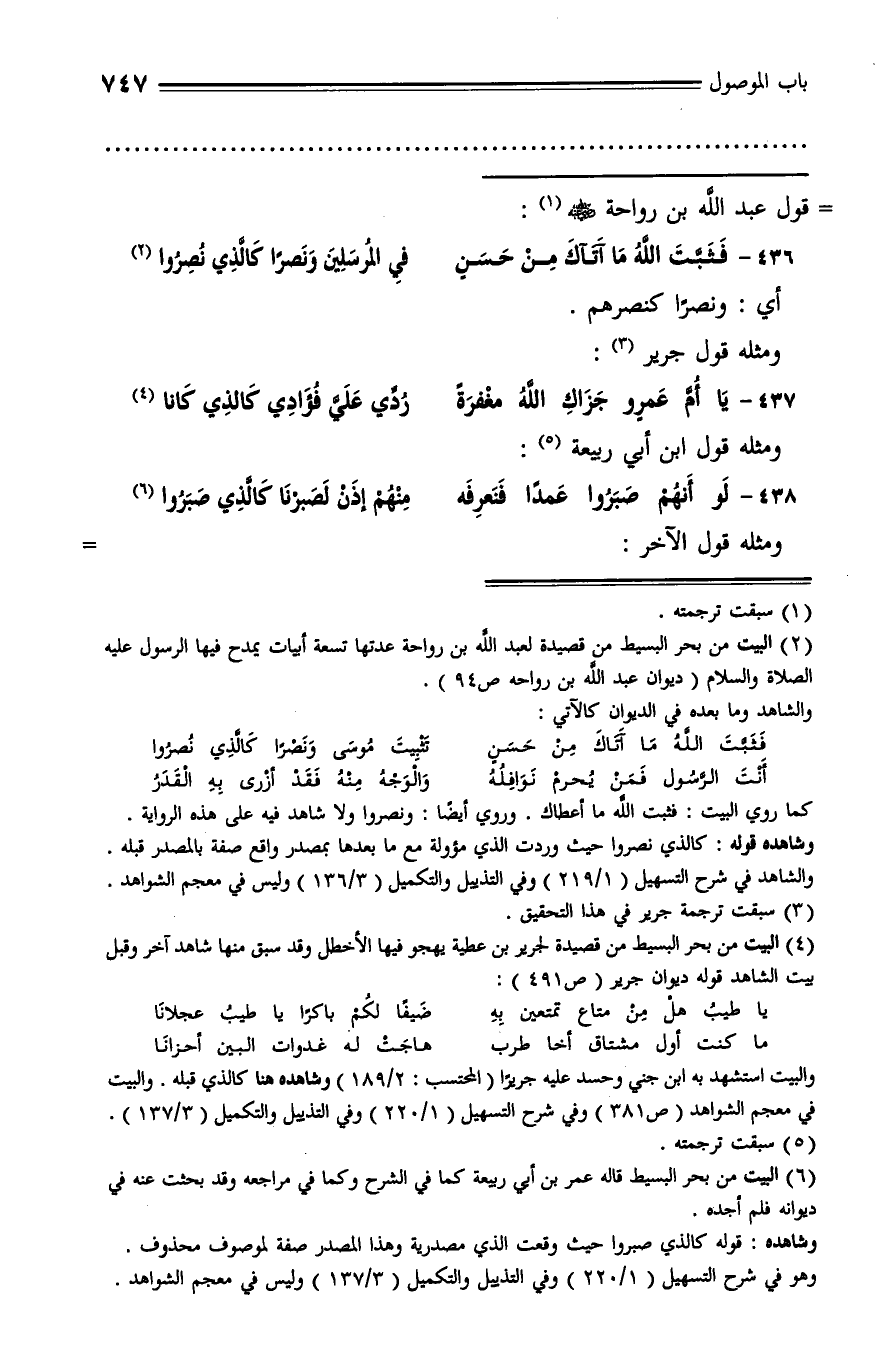 باب الموصول ٧٤٧
= قول عبد اللَّه بن رواحة ﵁ (١) :
٤٣٦ - فَثَبَّتَ اللَّهُ مَا آتَاكَ مِنْ حَسَنٍ فِي المُرسَلِينَ وَنَصرًا كَالَّذِي نُصِرُوا (٢)
أي : ونصرًا كنصرهم .
ومثله قول جرير (٣) :
٤٣٧ - يَا أُمَّ عَمرٍو جَزَاكِ اللَّهُ مغْفرَةً رُدِّي عَلَيَّ فُؤَادِي كَالذِي كَانا (٤)
ومثله قول ابن أبي ربيعة (٥) :
٤٣٨ - لَو أَنهُمْ صَبَرُوا عَمدًا فَتَعرِفَه مِنْهُمْ إذَنْ لَصَبرْنَا كَالَّذِي صَبَرُوا (٦)
ومثله قول الآخر : =
(١) سبقت ترجمته .
(٢) البيت من بحر البسيط من قصيدة لعبد اللَّه بن رواحة عدتها تسعة أبيات يمدح فيها الرسول عليه
الصلاة والسلام ( ديوان عبد اللَّه بن رواحه ص٩٤ ) .
والشاهد وما بعده في الديوان كالآتي :
فَثَبَّتَ اللَّهُ مَا أَتَاكَ مِنْ حَسَنٍ تَثْبِيتَ مُوسَى وَنَصْرًا كَالَّذِي نُصرُوا
أَنْتَ الرَّسُول فَمَنْ يُحرمْ نَوَافِلُهُ وَالْوَجْهُ مِنْهُ فَقَدْ أزْرى بِهِ الْقَدَرُ
كما روي البيت : فثبت اللَّه ما أعطاك . وروي أيضًا : ونصروا ولا شاهد فيه على هذه الرواية .
وشاهده قوله : كالذي نصروا حيث وردت الذي مؤولة مع ما بعدها بمصدر واقع صفة بالمصدر قبله .
والشاهد في شرح التسهيل ( ٢١٩/١ ) وفي التذييل والتكميل ( ١٣٦/٣ ) وليس في معجم الشواهد .
(٣) سبقت ترجمة جرير في هذا التحقيق .
(٤) البيت من بحر البسيط من قصيدة لجرير بن عطية يهجو فيها الأخطل وقد سبق منها شاهد آخر وقبل
بيت الشاهد قوله ديوان جرير ( ص٤٩١ ) :
يا طيبُ هلْ مِنْ متاع تمتعين بِهِ ضَيفًا لكُمْ باكرًا يا طيبُ عجلانَا
ما كنت أول مشتاق أخا طرب هاجَتْ له غدوات البين أحزانَا
والبيت استشهد به ابن جني وحسد عليه جريرًا ( المحتسب : ١٨٩/٢ ) وشاهده هنا كالذي قبله . والبيت
في معجم الشواهد ( ص٣٨١ ) وفي شرح التسهيل ( ٢٢٠/١ ) وفي التذييل والتكميل ( ١٣٧/٣ ) .
(٥) سبقت ترجمته .
(٦) البيت من بحر البسيط قاله عمر بن أبي ربيعة كما في الشرح وكما في مراجعه وقد بحثت عنه في
ديوانه فلم أجده .
وشاهده : قوله كالذي صبروا حيث وقعت الذي مصدرية وهذا المصدر صفة لموصوف محذوف .
وهو في شرح التسهيل ( ٢٢٠/١ ) وفي التذييل والتكميل ( ١٣٧/٣ ) وليس في معجم الشواهد .